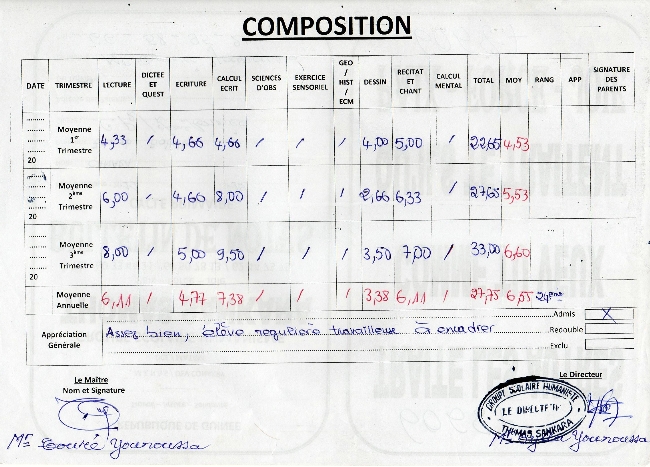 COMPOSITION
DATE TRIMESTRE LECTURE DICTEE ET QUEST ECRITURE CALCUL ECRIT SCIENCES D'OBS EXERCICE SENSORIEL GEO / HIST / ECM DESSIN RECITAT ET CHANT CALCUL MENTAL TOTAL MOY RANG APP SIGNATURE DES PARENTS
20 Moyenne 1er Trimestre 4,33 / 4,66 4,66 / / / 4,00 5,00 / 22,65 4,53
20 Moyenne 2ème Trimestre 6,00 / 4,66 8,00 / / / 2,66 6,33 / 27,65 5,53
20 Moyenne 3ème Trimestre 8,00 / 5,00 9,50 / / / 3,50 7,00 / 33,00 6,60
Moyenne Annuelle 6,11 / 4,77 7,38 / / / 3,38 6,11 / 27,75 6,55
Admis X
Appréciation Générale Assez bien, élève travailleuse à
Redouble
Exclu
Le Maître
Nom et Signature
Le Directeur
GROUPE SCOLAIRE HUMANISTE
LE DIRECTEUR
THOMAS SANKARA
Mr Younoussa
Mr Younoussa